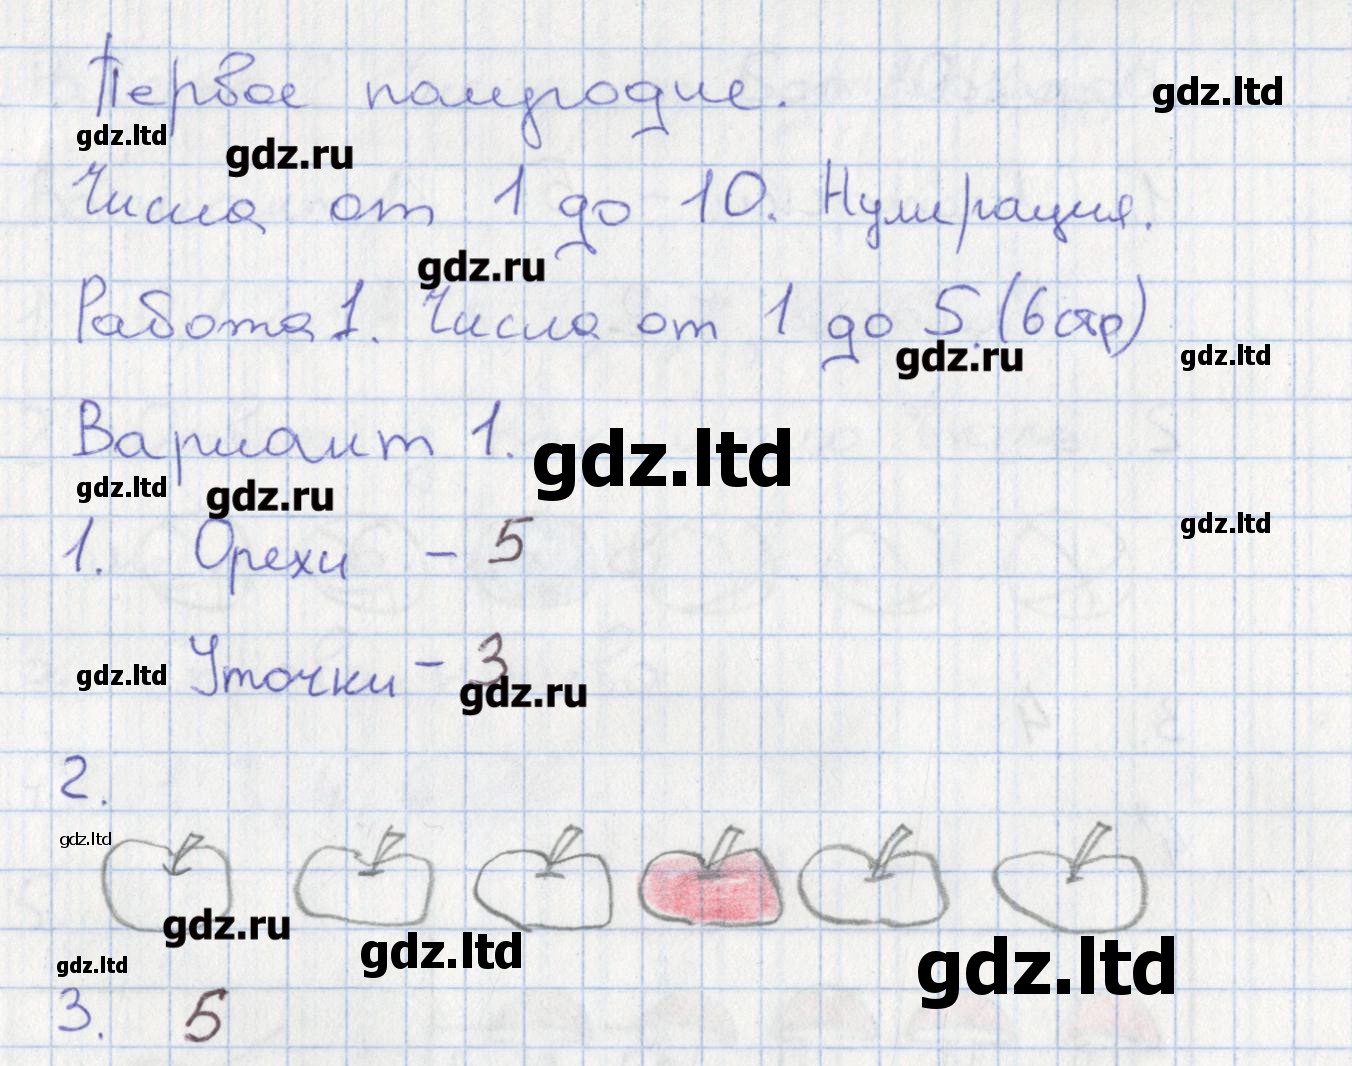 Первое полугодие.
gdz.ltd
gdz.ltd
gdz.ru
Числа от 1 до 10. Нумерация.
gdz.ru
Работа 1. Числа от 1 до 5. (6 стр)
gdz.ru
gdz.ltd
Вариант 1.
gdz.ltd
gdz.ltd
gdz.ru
gdz.ltd
1. Орехи - 5
Уточки - 3
gdz.ltd
gdz.ru
2.
gdz.ltd
gdz.ru
gdz.ltd
gdz.ltd
gdz.ltd
3. 5